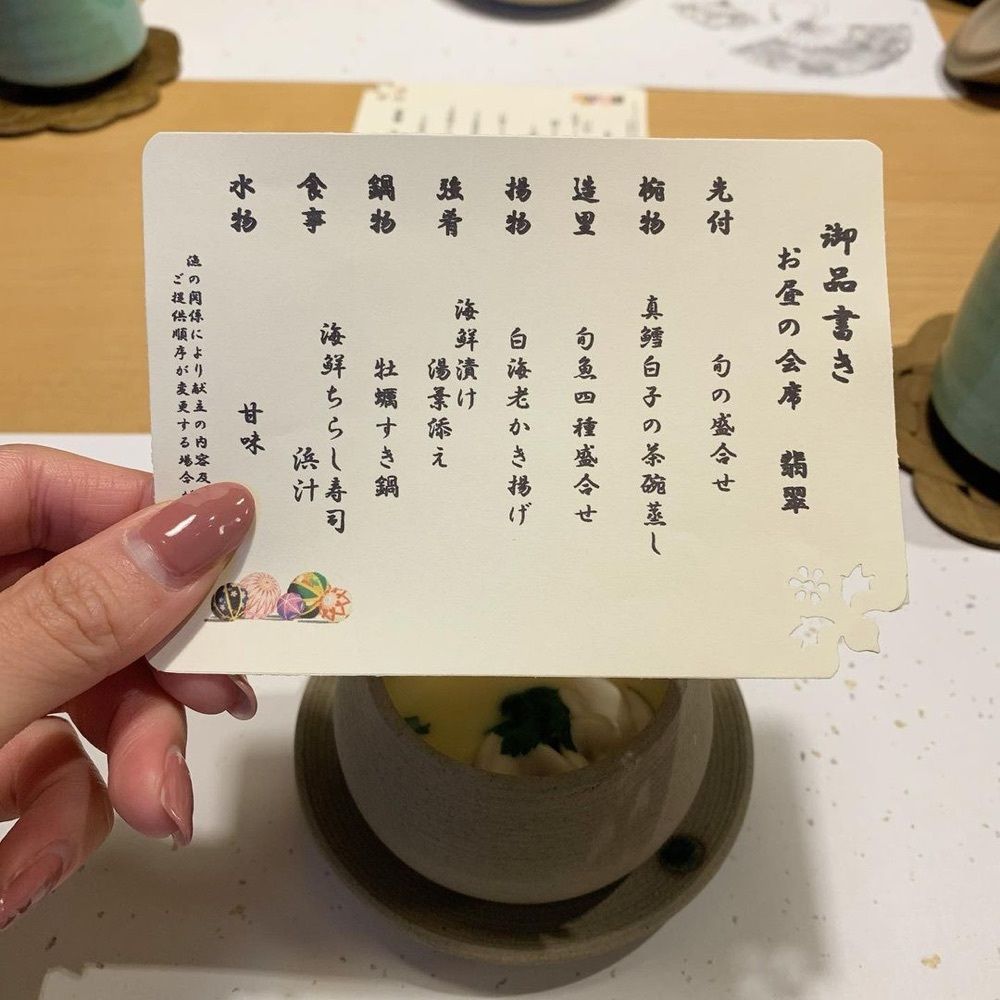 御品書き
お昼の会席 翡翠
先付 旬の盛合せ
椀物 真鱈白子の茶碗蒸し
造里 旬魚四種盛合せ
揚物 白海老かき揚げ
強肴 海鮮漬け
湯葉添え
鍋物 牡蠣すき鍋
食事 海鮮ちらし寿司
浜汁
水物 甘味
漁の関係により献立の内容及
ご提供順序が変更する場合が